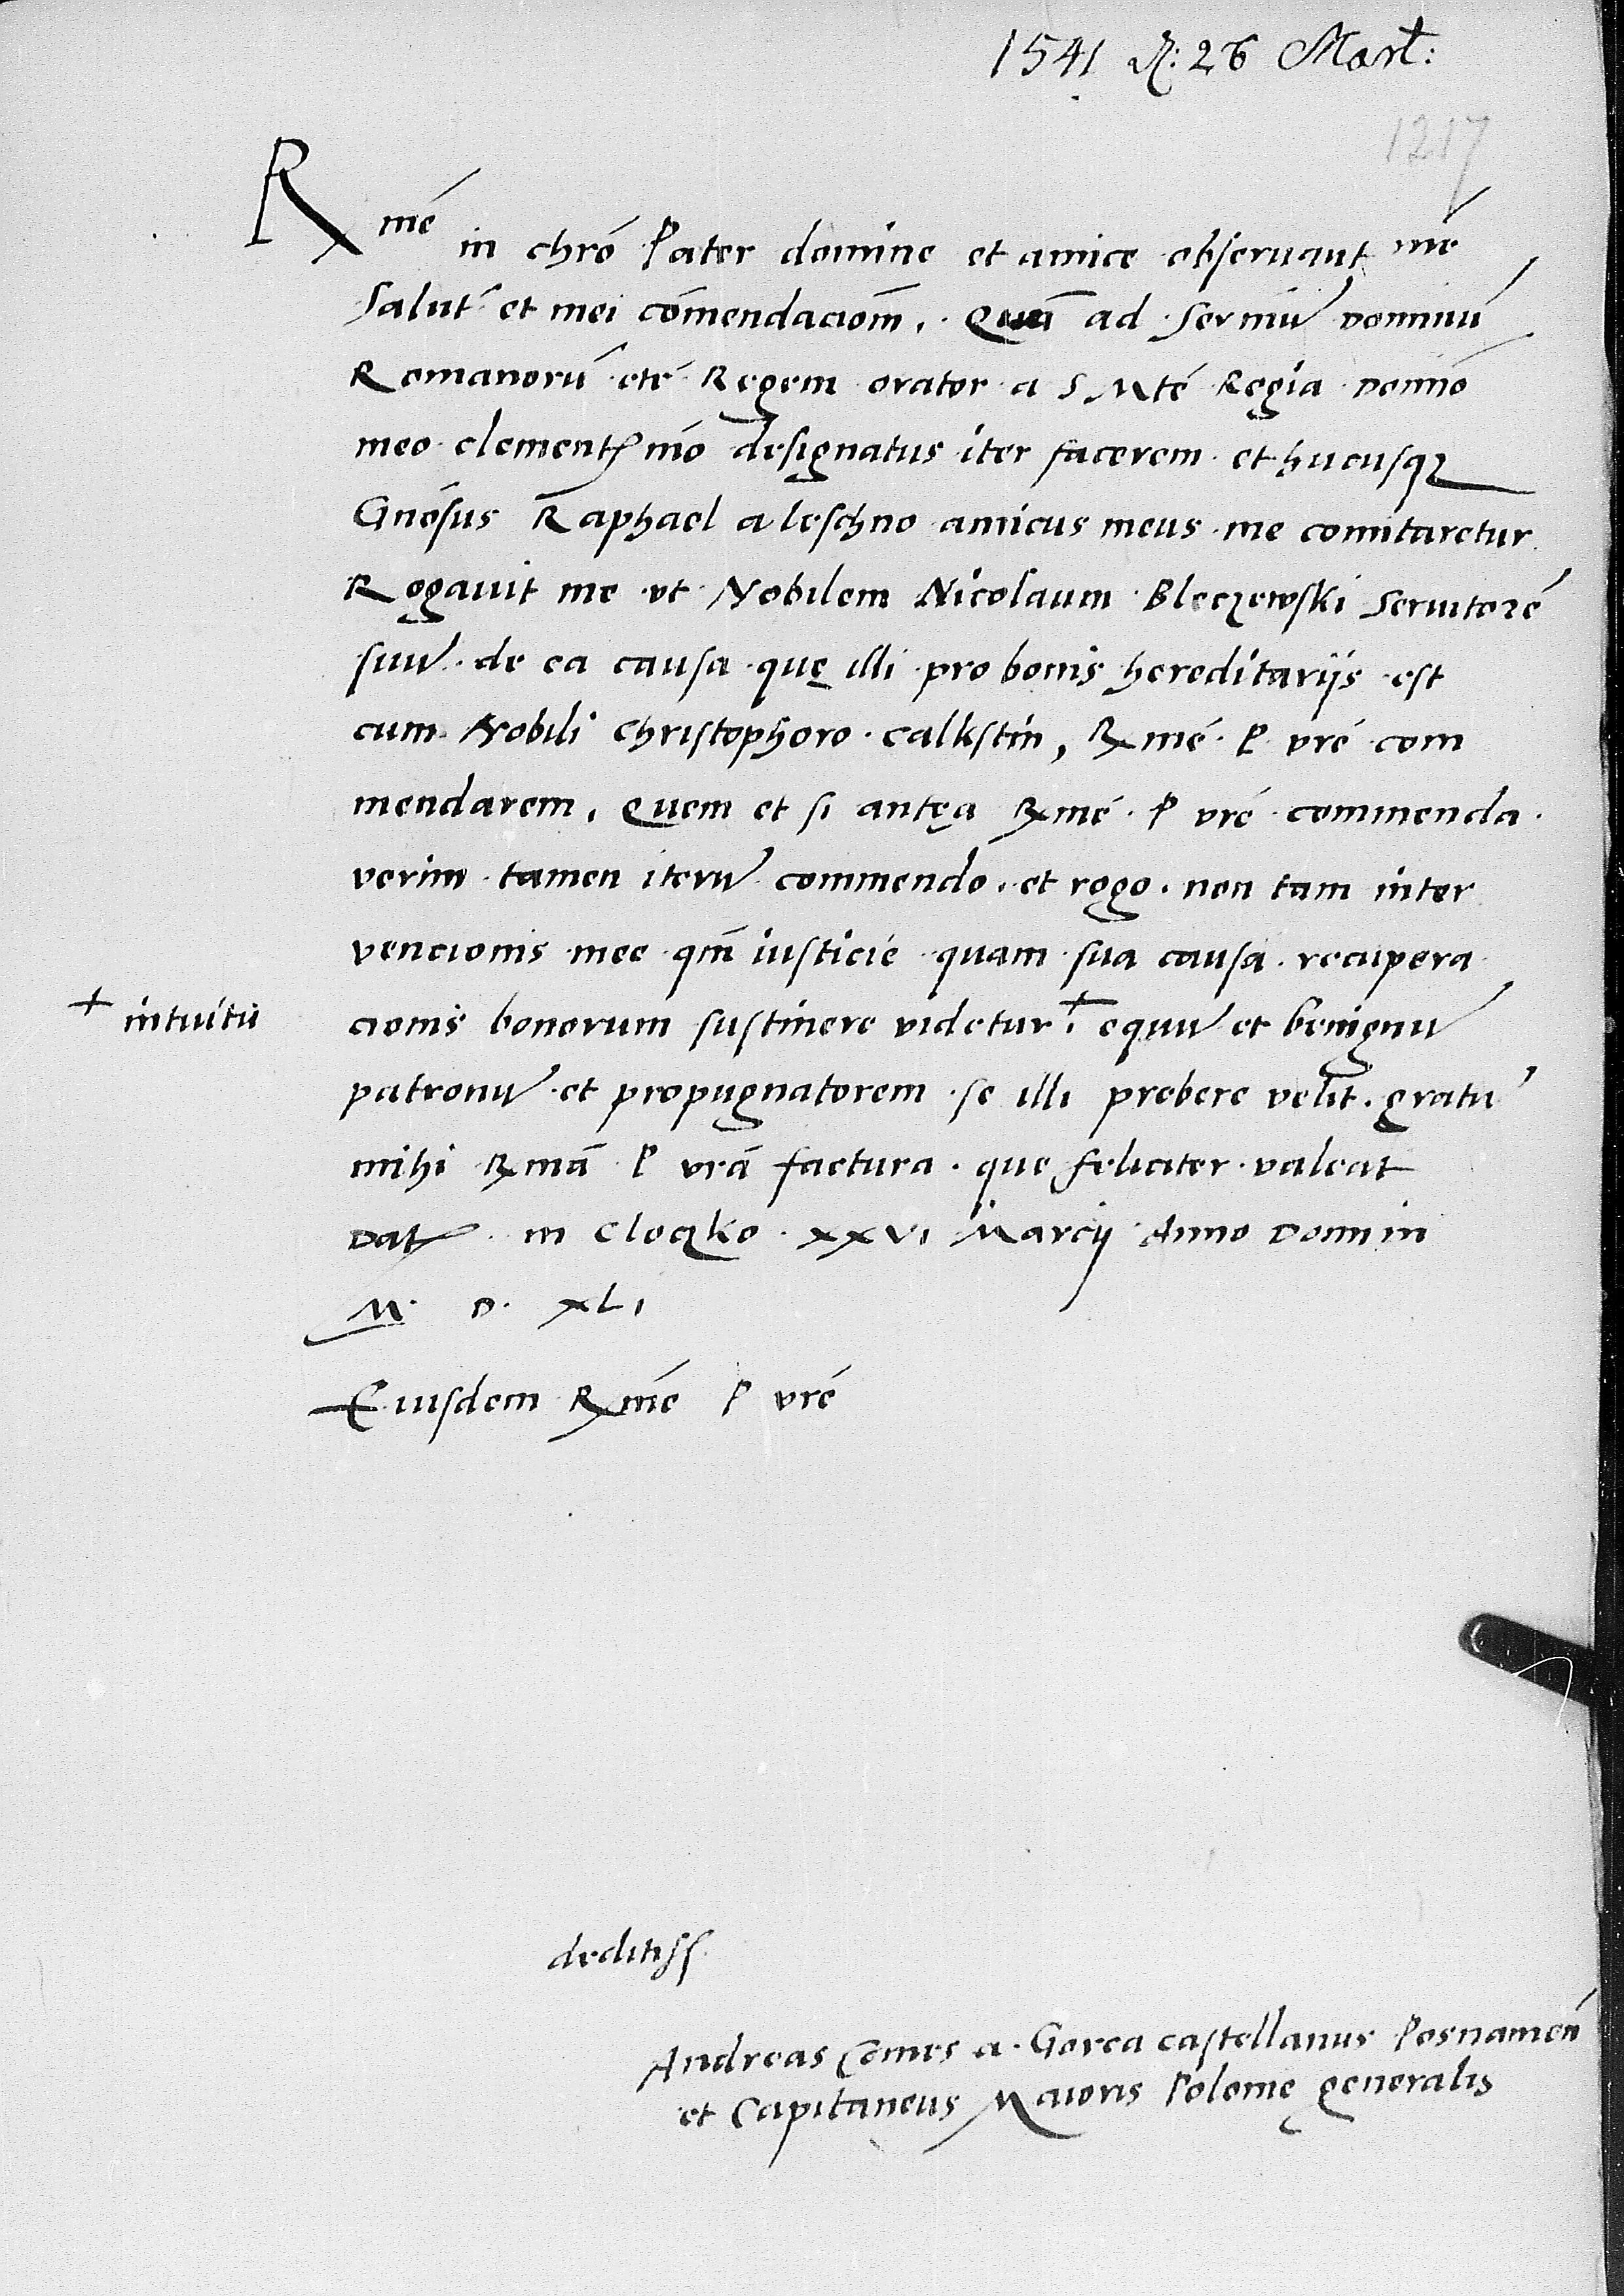 1541 D: 26 Mart:
1217
Rmē in chrō Pater domine et amice obseruant mē
Salut et mei cōmendaciom̄. Quū ad sermū dominū
Romanorū etc̄ Regem orator a S Mtē Regia domiō
meo clement mō designatus iter facerem et hucusq;
Gnōsus Raphael a leschno amicus meus me comitaretur
Rogauit me vt Nobilem Nicolaum Bleczewski Seruitorē
suū de ea causa quę illi pro bonis hereditariis est
cum Nobili Christophoro Calkstin, Rmē P vrē com
mendarem. Quem et si antęa Rmē P vrē commenda
verim tamen iterū commendo. et rogo. non tam inter
vencionis mee qm̄ iusticie quam sua causa recupera
cionis bonorum sustinere videtur + equū et benignū
+ intuitu
patronū et propugnatorem se illi prebere velit. gratū
mihi Rmā P vrā factura. que feliciter valeat
Dat in Cloczko XXVI Marcij Anno Domin
M. D. XLI
Eiusdem Rmē P vrē
deditiss.
Andreas Comes a Gorca castellanus Posnanień
et Capitaneus Maioris Polonię generalis